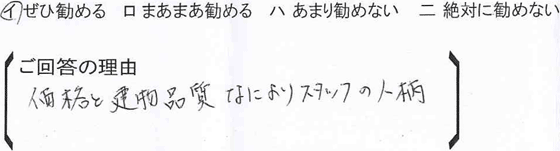 イぜひ勧める ロまあまあ勧める ハ あまり勧めない 二 絶対に勧めない
ご回答の理由
価格と建物品質 なによりスタッフの人柄